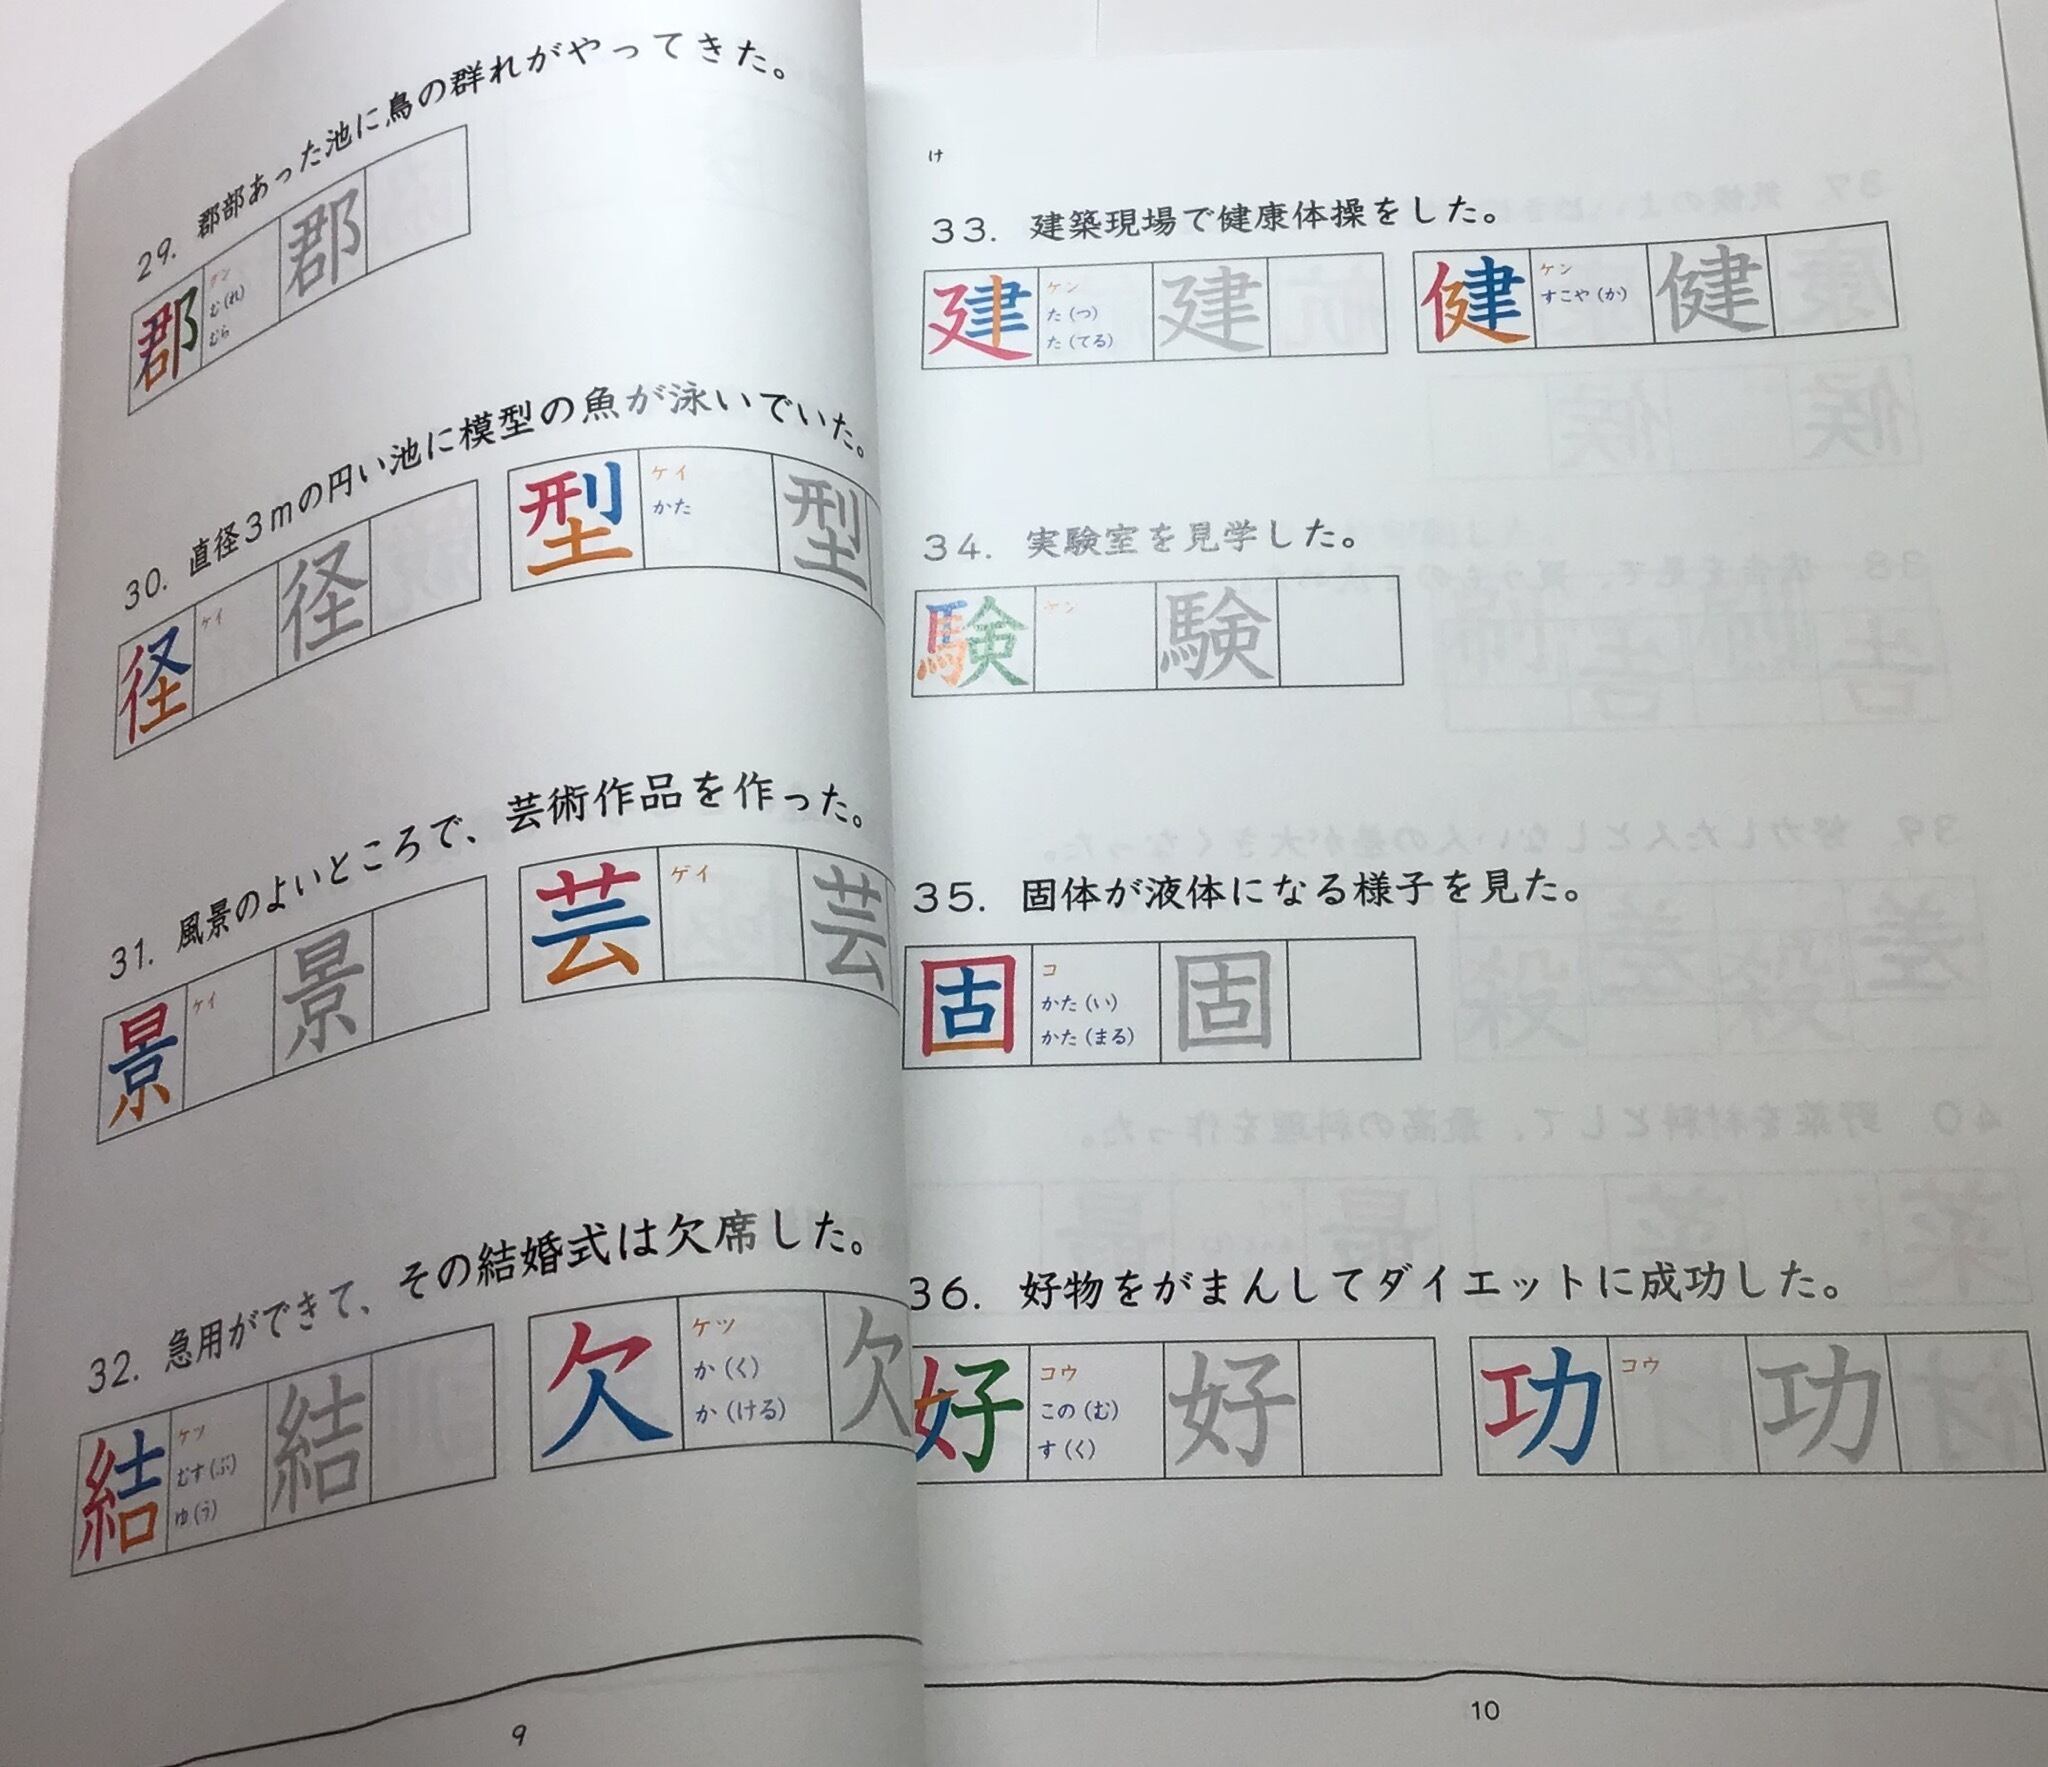 29. 郡部あった池に鳥の群れがやってきた。
郡 グン 郡
む(れ)
むら
30. 直径3mの円い池に模型の魚が泳いでいた。
径 ケイ 径 型 ケイ 型
かた
31. 風景のよいところで、芸術作品を作った。
景 ケイ 景 芸 ゲイ 芸
32. 急用ができて、その結婚式は欠席した。
結 ケツ 結 欠 ケツ 欠
むす(ぶ) か(く)
ゆ(う) か(ける)
9
け
33. 建築現場で健康体操をした。
建 ケン 建 健 ケン 健
た(つ) すこや(か)
た(てる)
34. 実験室を見学した。
験 ケン 験
35. 固体が液体になる様子を見た。
固 コ 固
かた(い)
かた(まる)
36. 好物をがまんしてダイエットに成功した。
好 コウ 好 功 コウ 功
この(む)
す(く)
10